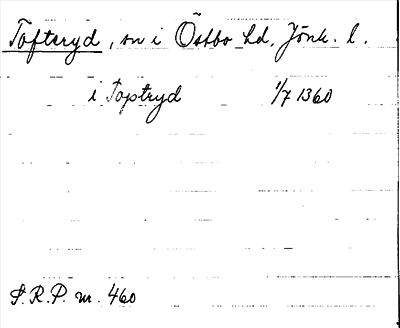 Toftaryd, sn i Östbo hd, Jönk. l.
i Toptryd 1/7 1360
S.R.P. nr. 460